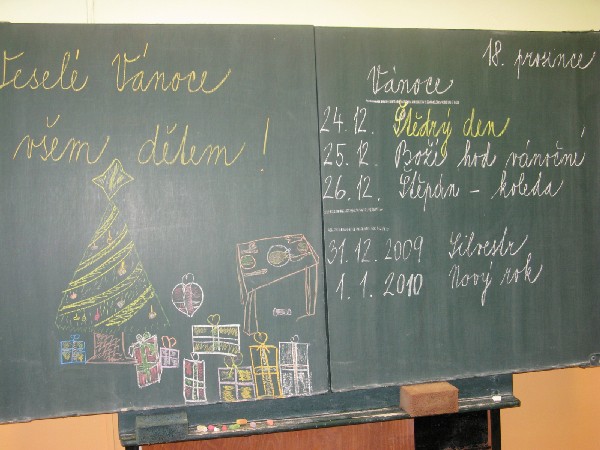 Veselé Vánoce
všem dětem!
18. prosince
Vánoce
24.12. Štědrý den
25.12. Boží hod vánoční
26.12. Štěpán - koleda
31.12.2009 Silvestr
1.1.2010 Nový rok